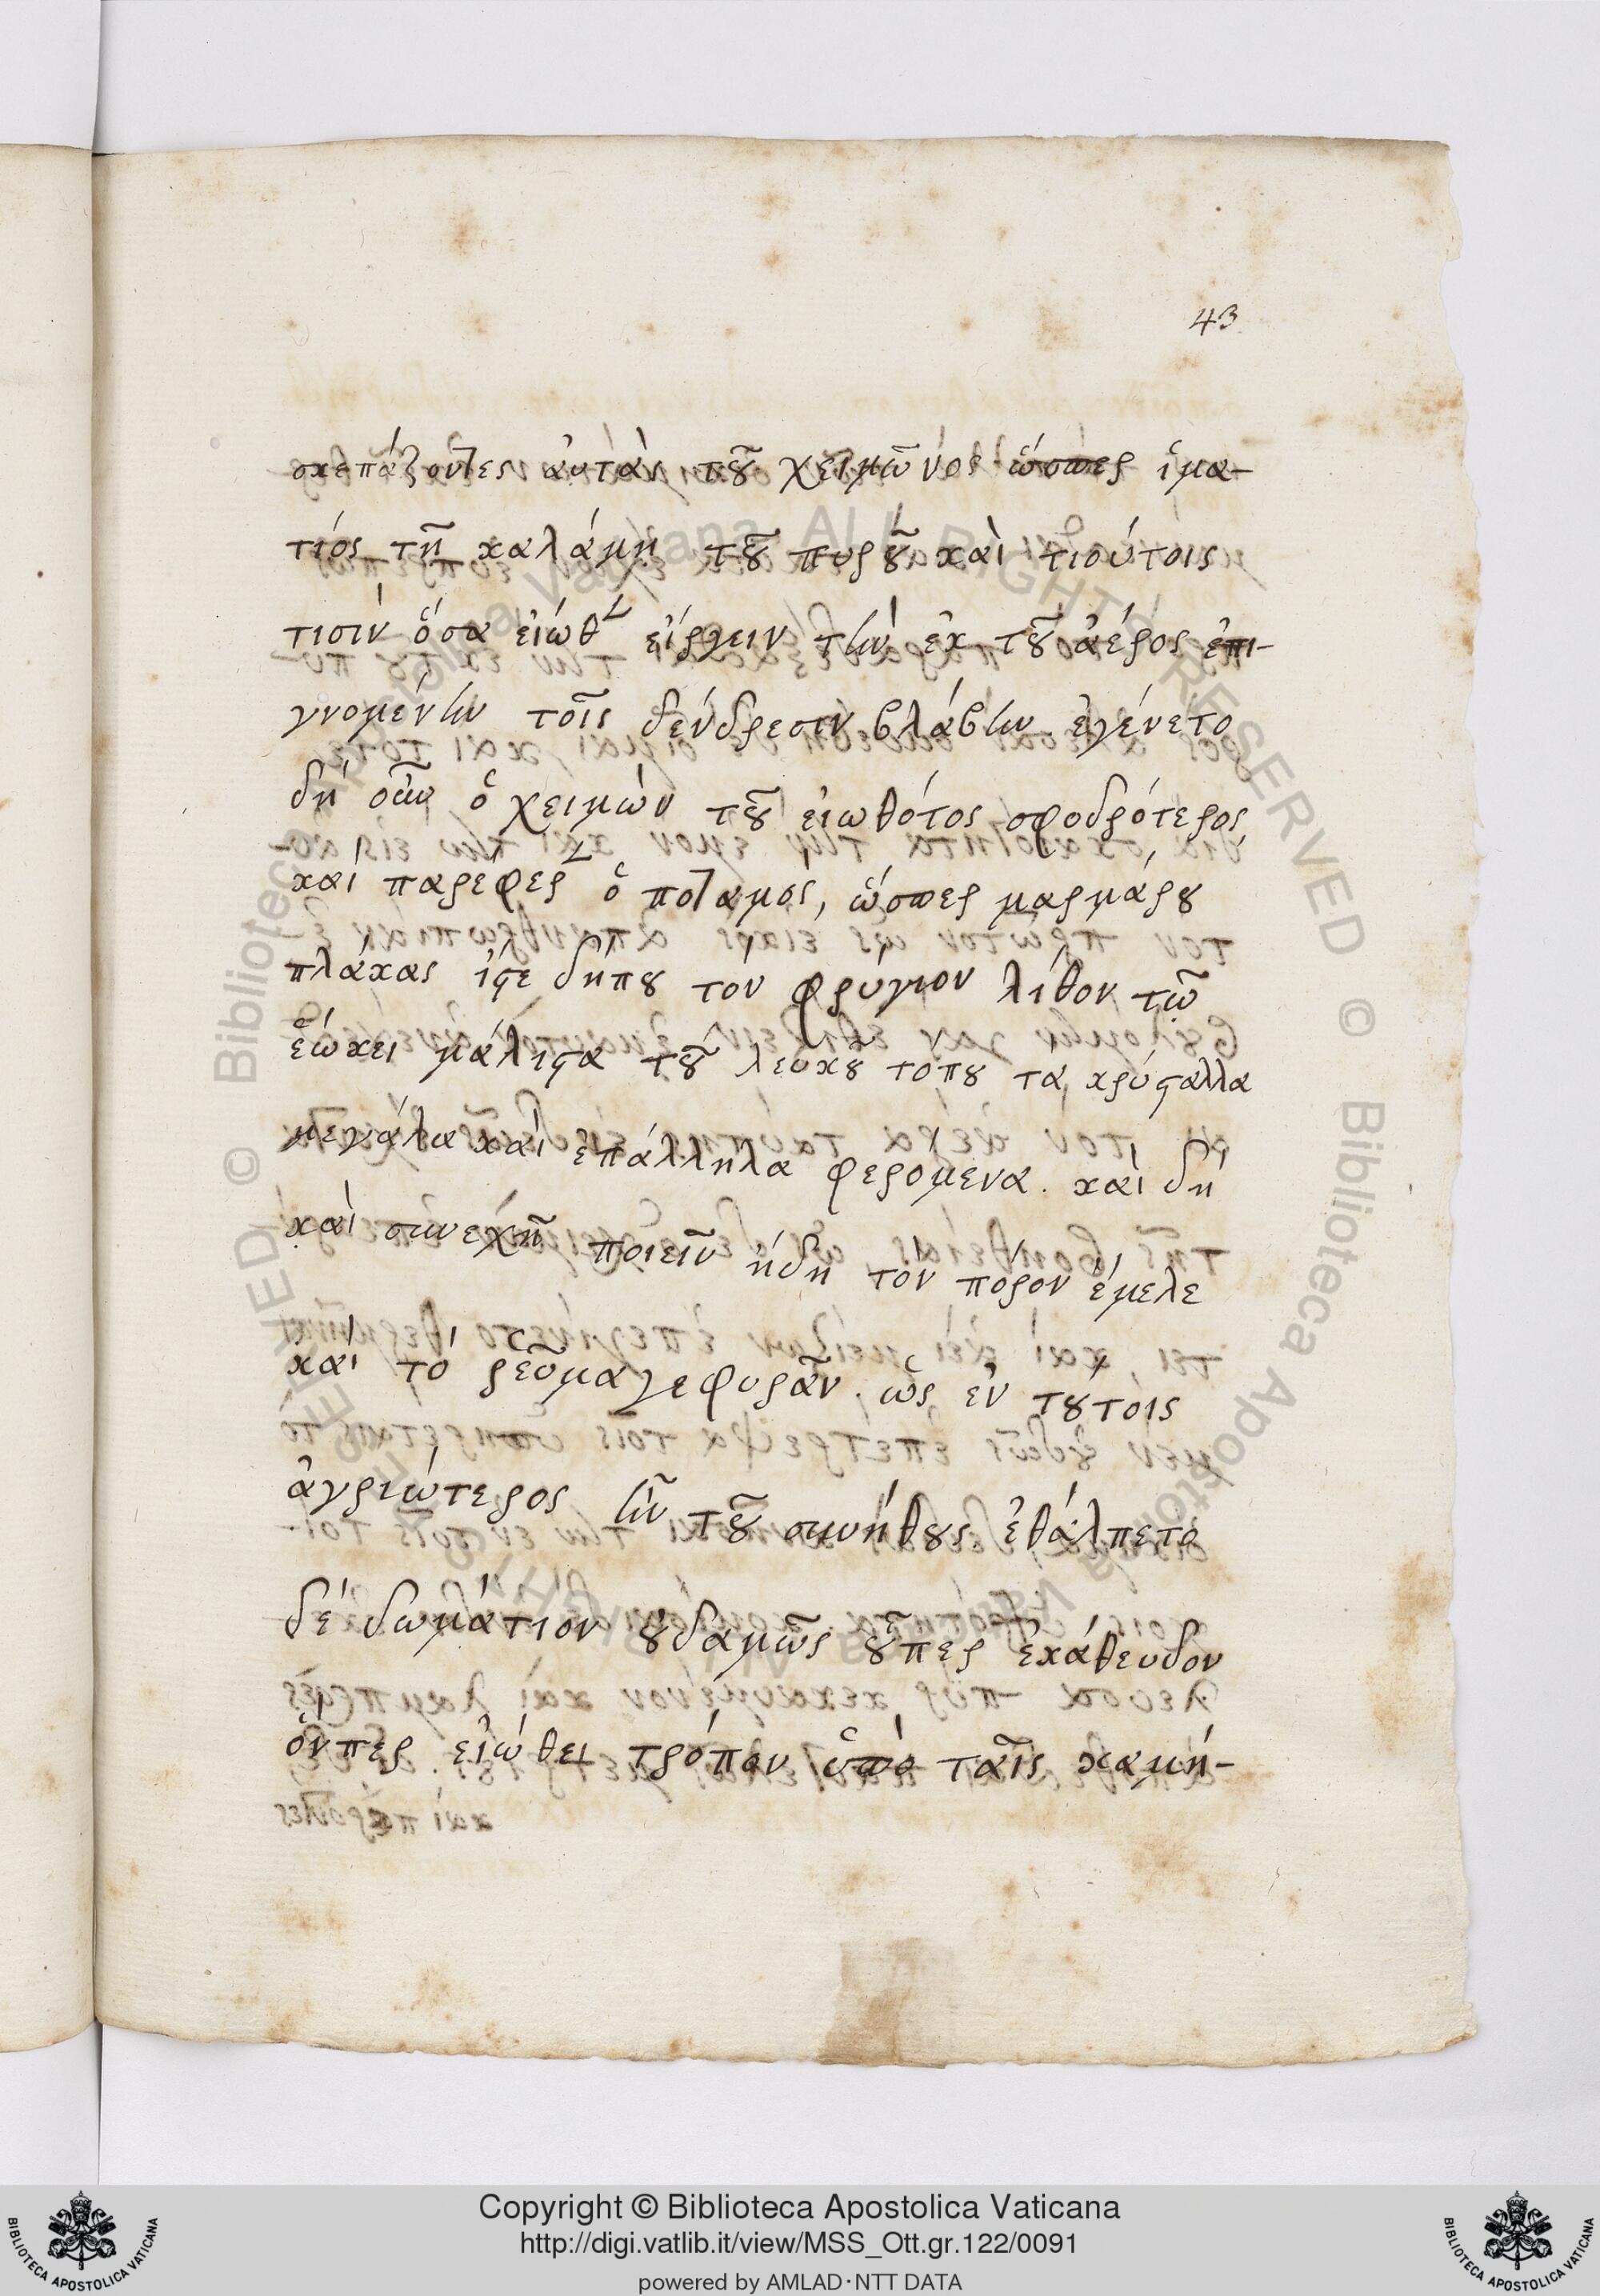 43
σκεπάζοντες αὐτὰς τοῦ χειμῶνος ὥσπερ ἱμα-
τίος τῆ καλάμη τοῦ πυροῦ καὶ τιούτοις
τισὶν ὅσα εἰώθ εἴργειν τὴν ἐκ τοῦ ἀέρος ἐπι-
γνομένην τοῖς δένδρεσιν βλάβην. ἐγένετο
δή οὖν ὁ χειμὼν τοῦ εἰωθότος σφοδρότερος,
καὶ παρέφερ ὁ ποταμὸς, ὥσπερ μαρμάρου
πλάκας ἴστε δήπου τὸν φρύγιον λίθον τῶ
ἐώκει μάλιστα τοῦ λευκοῦ τόπου τὰ κρύσταλλα
μεγάλα καὶ ἐπάλληλα φερομενα. καὶ δὴ
καὶ συνεχῆ ποιεῖν ἤδη τὸν πόρον ἔμελε
καὶ τὸ ῥεῦμα γεφυρᾶν. ὡς ἐν τούτοις
ἀγριώτερος ἦν τοῦ συνήθους ἐθάλπετο
δὲ δωμάτιον οὐδαμῶς οὗπερ ἐκάθευδον
ὅνπερ εἰώθει τρόπον ὑπὸ ταῖς καμή-
Copyright © Biblioteca Apostolica Vaticana
http://digi.vatlib.it/view/MSS_Ott.gr.122/0091
powered by AMLAD·NTT DATA